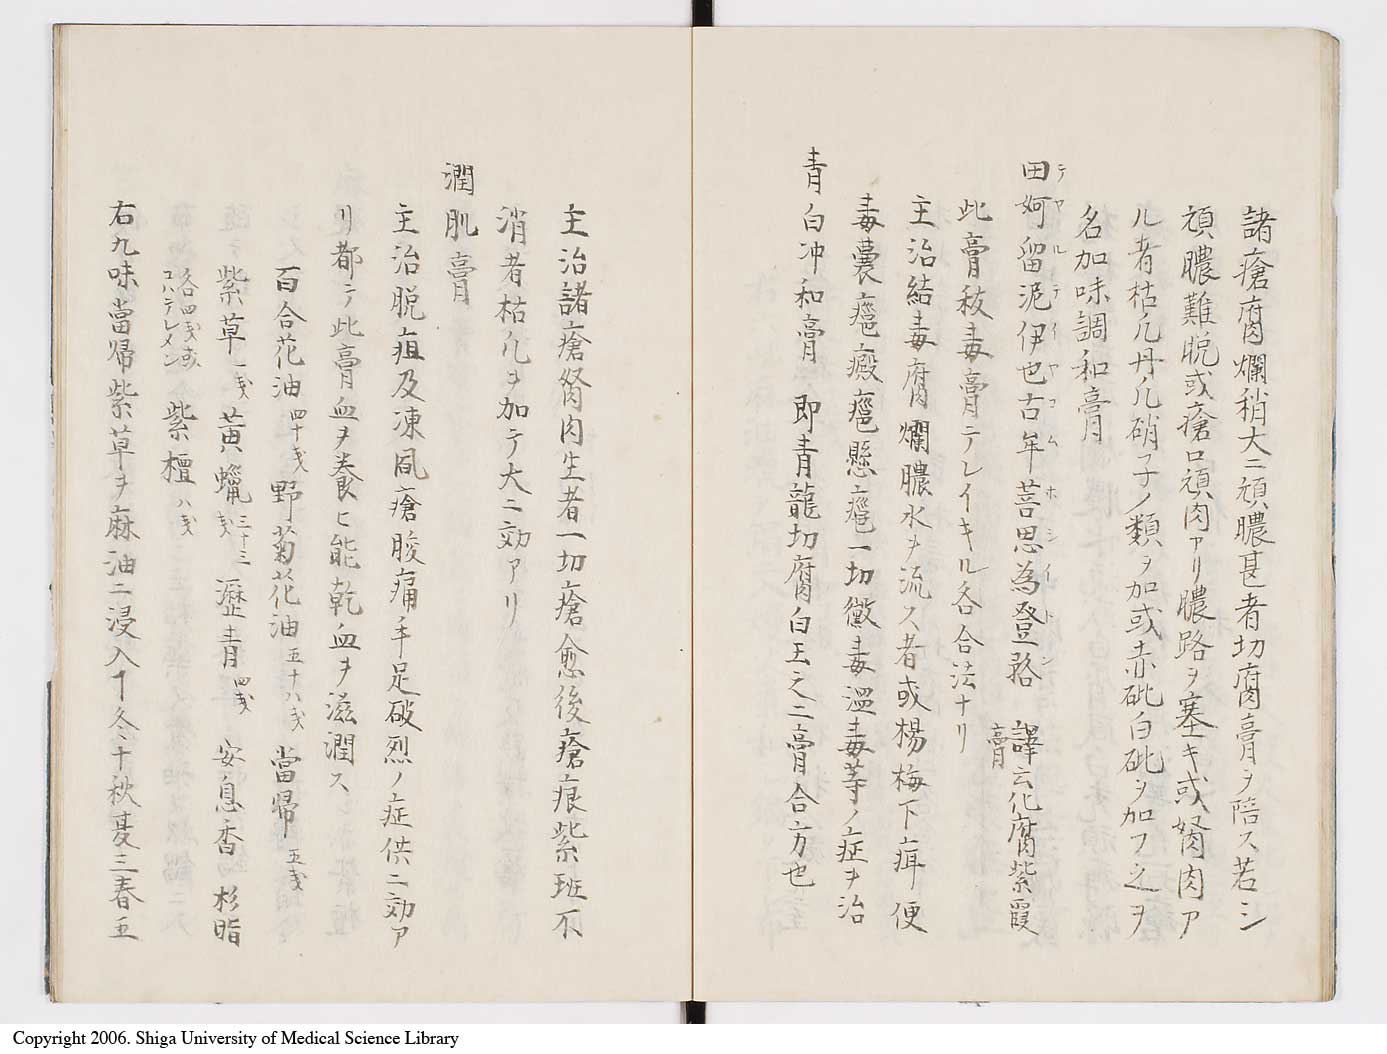 諸瘡腐爛稍大ニ頑膿甚者切腐膏ヲ陪ス若シ
頑膿難脱或瘡口頑肉アリ膿路ヲ塞キ或努肉ア
ル者枯凡丹凡硝子ノ類ヲ加或赤砒白砒ヲ加フ之ヲ
名加味調和膏
田妸留泥伊也古牟菩思為登酪 譯云化腐紫霞膏
テヤルデイヤコムホシイドン
此膏秡毒膏テレイキル各合法ナリ
主治結毒腐爛膿水ヲ流ス者或楊梅下疳便
毒嚢癰癜癰懸癰一切黴毒温毒等ノ症ヲ治
青白冲和膏 即青龍切腐白玉之二膏合方也
主治諸瘡努肉生者一切瘡愈後瘡痕紫斑不
消者枯凡ヲ加テ大ニ効アリ
潤肌膏
主治脱疽及凍風瘡酸痛手足破烈ノ症供ニ効ア
リ都テ此膏血ヲ養ヒ能乾血ヲ滋潤ス
百合花油 四十戔 野菊花油 五十八戔 當帰 五戔
紫草 一戔 黄蠟 三十三戔 瀝青 四戔 安息香 杉脂
各四戔或コハテレメン 紫檀 八戔
右九味當帰紫草ヲ麻油ニ浸入丁冬十秋夏三春五